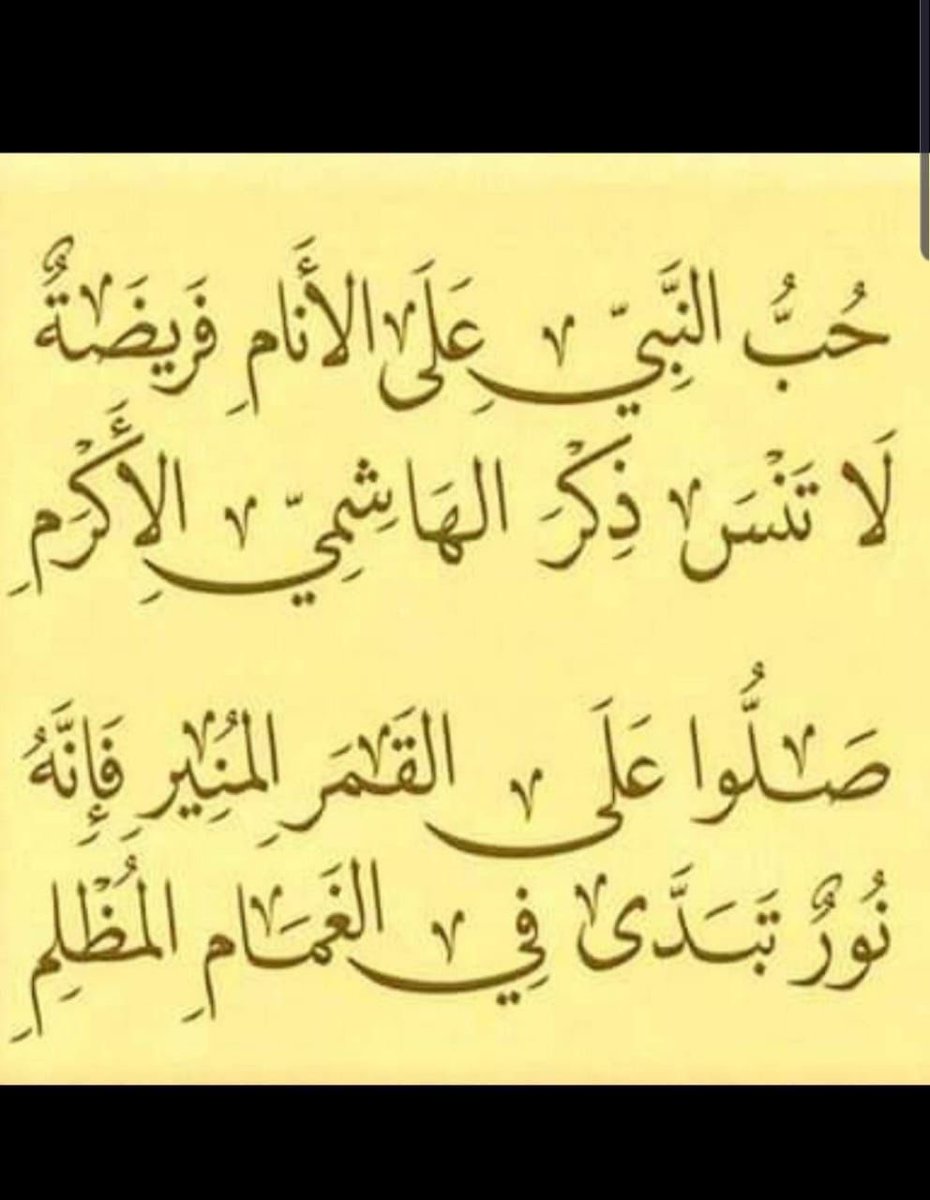 حُبُّ النَّبِيِّ عَلَى الأَنَامِ فَرِيضَةٌ
لَا تَنْسَ ذِكْرَ الهَاشِمِيِّ الأَكْرَمِ
صَلُّوا عَلَى القَمَرِ المُنِيرِ فَإِنَّهُ
نُورٌ تَبَدَّى فِي الغَمَامِ المُظْلِمِ